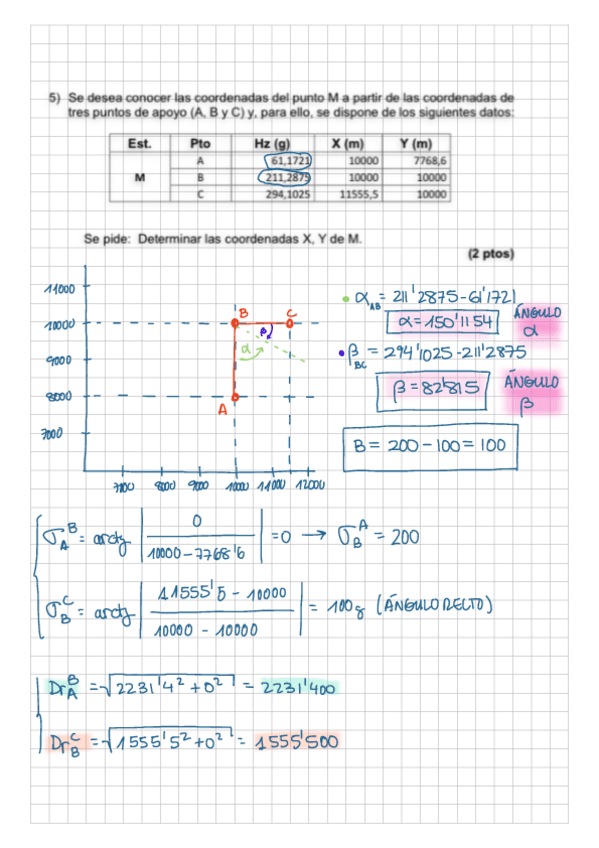 5) Se desea conocer las coordenadas del punto M a partir de las coordenadas de
tres puntos de apoyo (A, B y C) y, para ello, se dispone de los siguientes datos:
Est. Pto Hz (g) X (m) Y (m)
A 61,1721 10000 7768,6
M B 211,2875 10000 10000
C 294,1025 11555,5 10000
Se pide: Determinar las coordenadas X, Y de M.
(2 ptos)
11000
10000
9000
8000
7000
B
C
β
α
A
7000 8000 9000 10000 11000 12000
α AB = 211'2875-61'1721
α = 150'1154
ÁNGULO
α
β BC = 294'1025-211'2875
β = 82'815
ÁNGULO
β
B = 200 - 100 = 100
σ_A^B = arctg | 0 / 10000-7768'6 | = 0 → σ_B^A = 200
σ_B^C = arctg | 11555'5 - 10000 / 10000 - 10000 | = 100g (ÁNGULO RECTO)
Dr_A^B = √2231'4² + 0² = 2231'400
Dr_B^C = √1555'5² + 0² = 1555'500